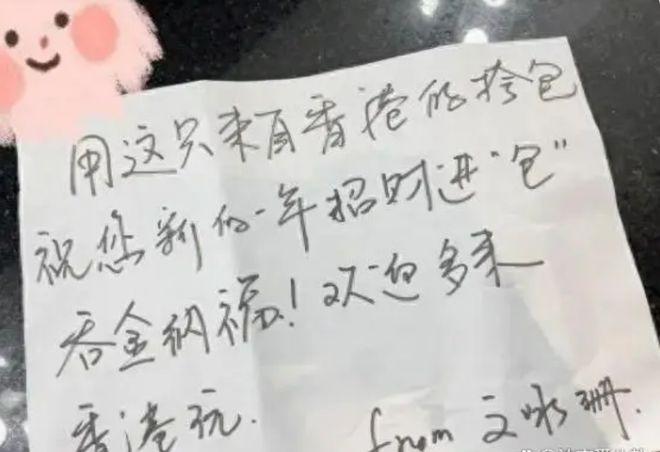 用这只来自香港的挎包
祝您新的一年招财进“包”
吞金纳福!欢迎多来
香港玩.
from 文咏珊.